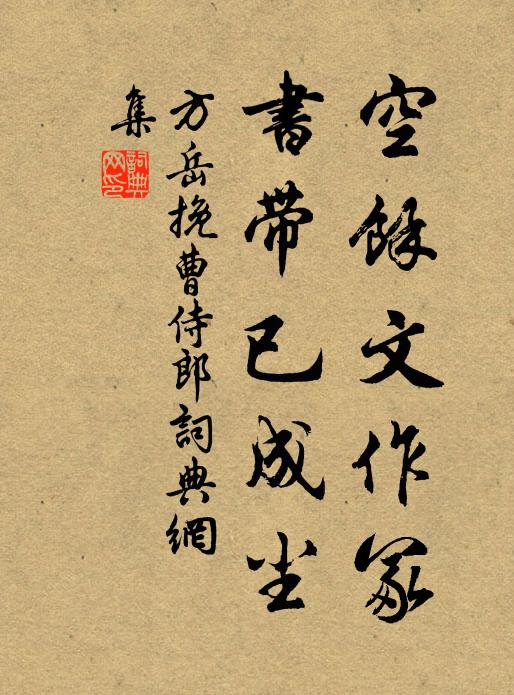 空餘文作冢
書帶已成尘
方岳挽曹侍郎詞典網
集
詞典網印